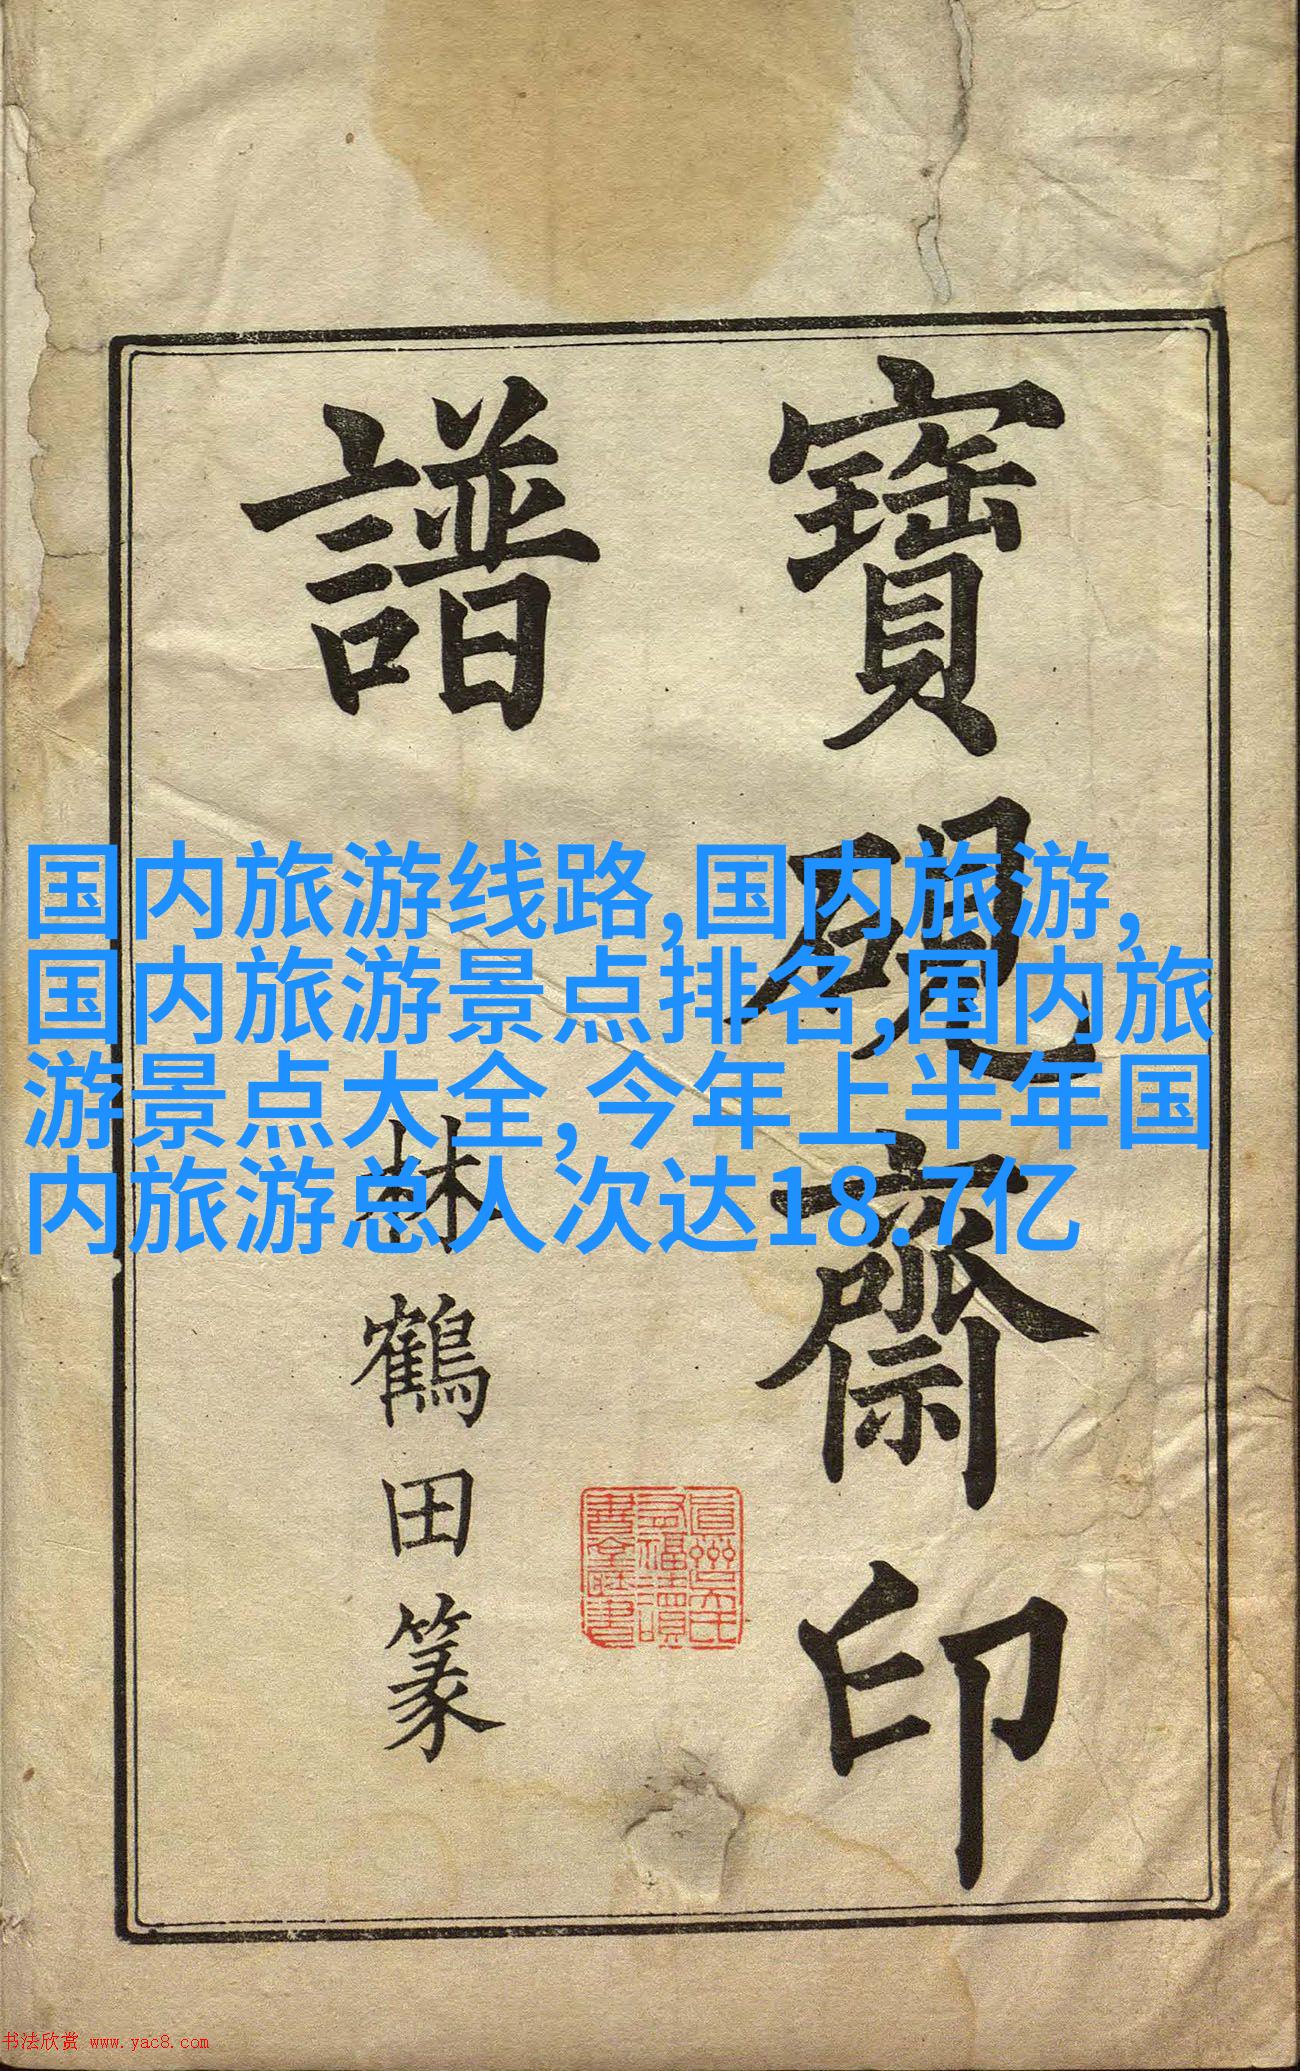 寶硯齋印
譜
林鶴田篆
国内旅游线路,国内旅游,
国内旅游景点排名,国内旅
游景点大全,今年上半年国
内旅游总人次达18.7亿
书法欣赏 www.yac8.com